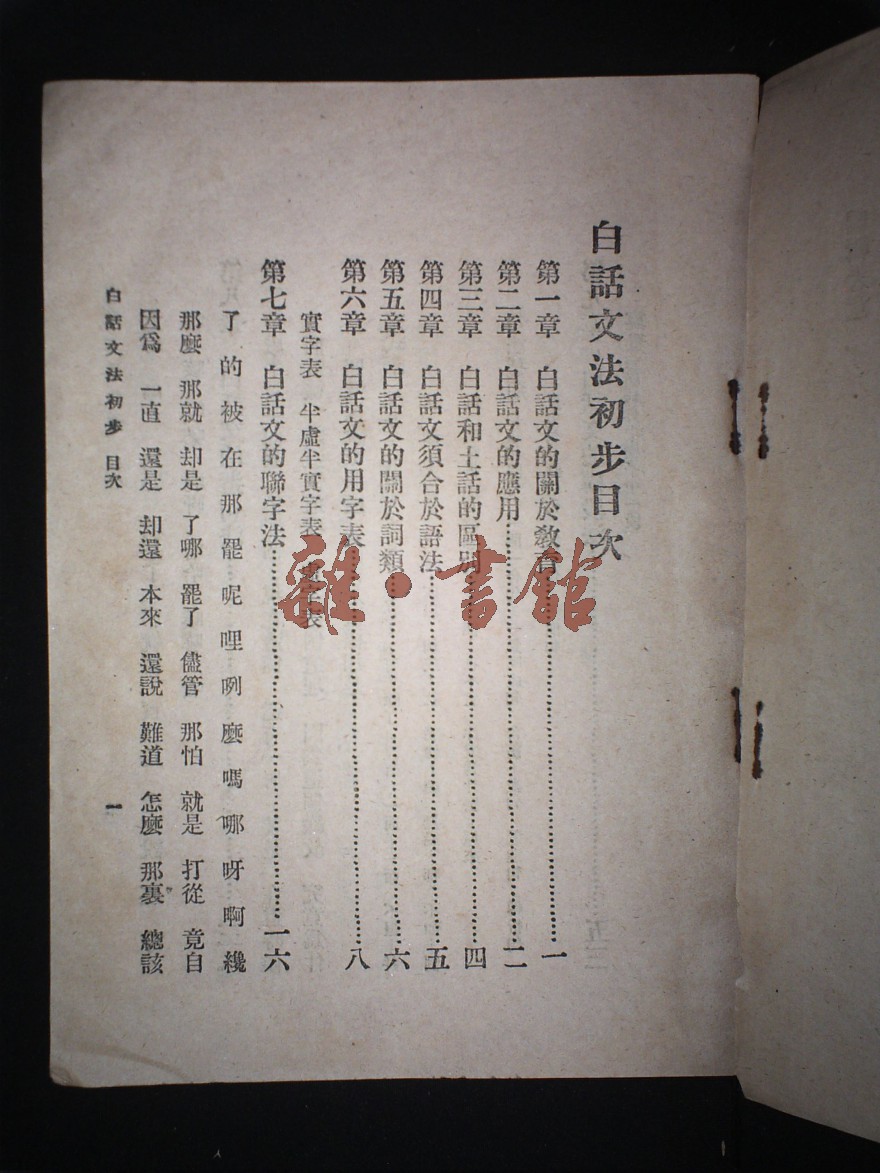 白話文法初步目次
第一章 白話文的關於教育……一
第二章 白話文的應用……二
第三章 白話和土話的區別……四
第四章 白話文須合於語法……五
第五章 白話文的關於詞類……六
第六章 白話文的用字表……八
實字表 半虛半實字表 虛字表
第七章 白話文的聯字法……一六
了 的 被 在 那 罷 呢 哩 咧 麼 嗎 哪 呀 啊 纔
那麼 那就 却是 了哪 罷了 儘管 那怕 就是 打從 竟自
因爲 一直 還是 却還 本來 還說 難道 怎麼 那裏 總該
白話文法初步 目次 一
雜·書館